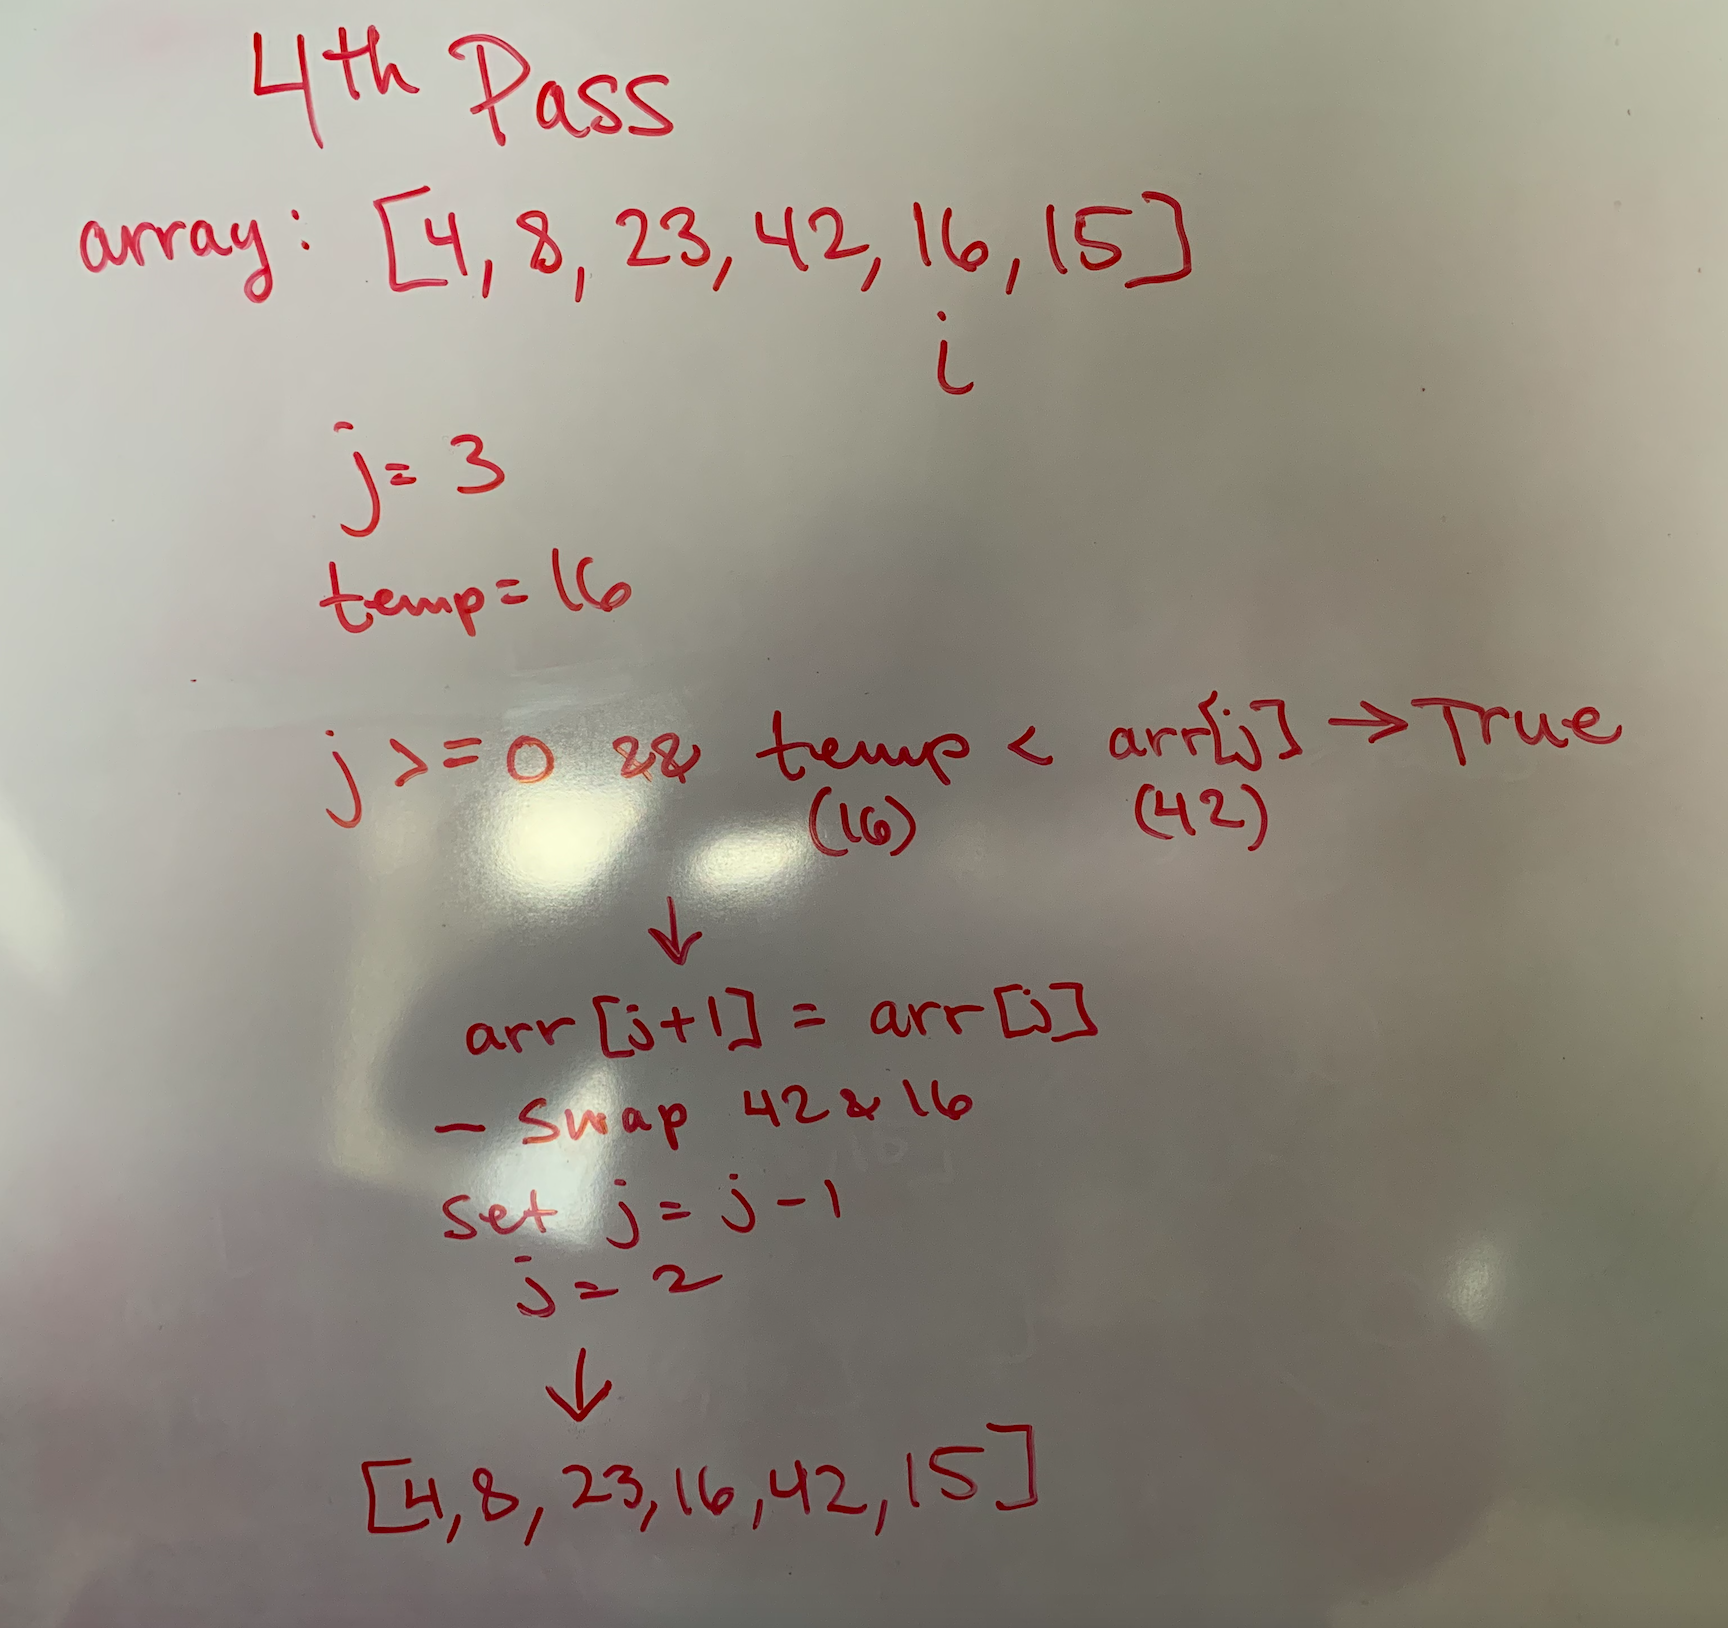 4th Pass
array: [4, 8, 23, 42, 16, 15]
i
j= 3
temp= 16
j >= 0 && temp < arr[j] → True
(16) (42)
↓
arr [j+1] = arr [j]
- Swap 42 & 16
set j = j - 1
j = 2
↓
[4, 8, 23, 16, 42, 15]